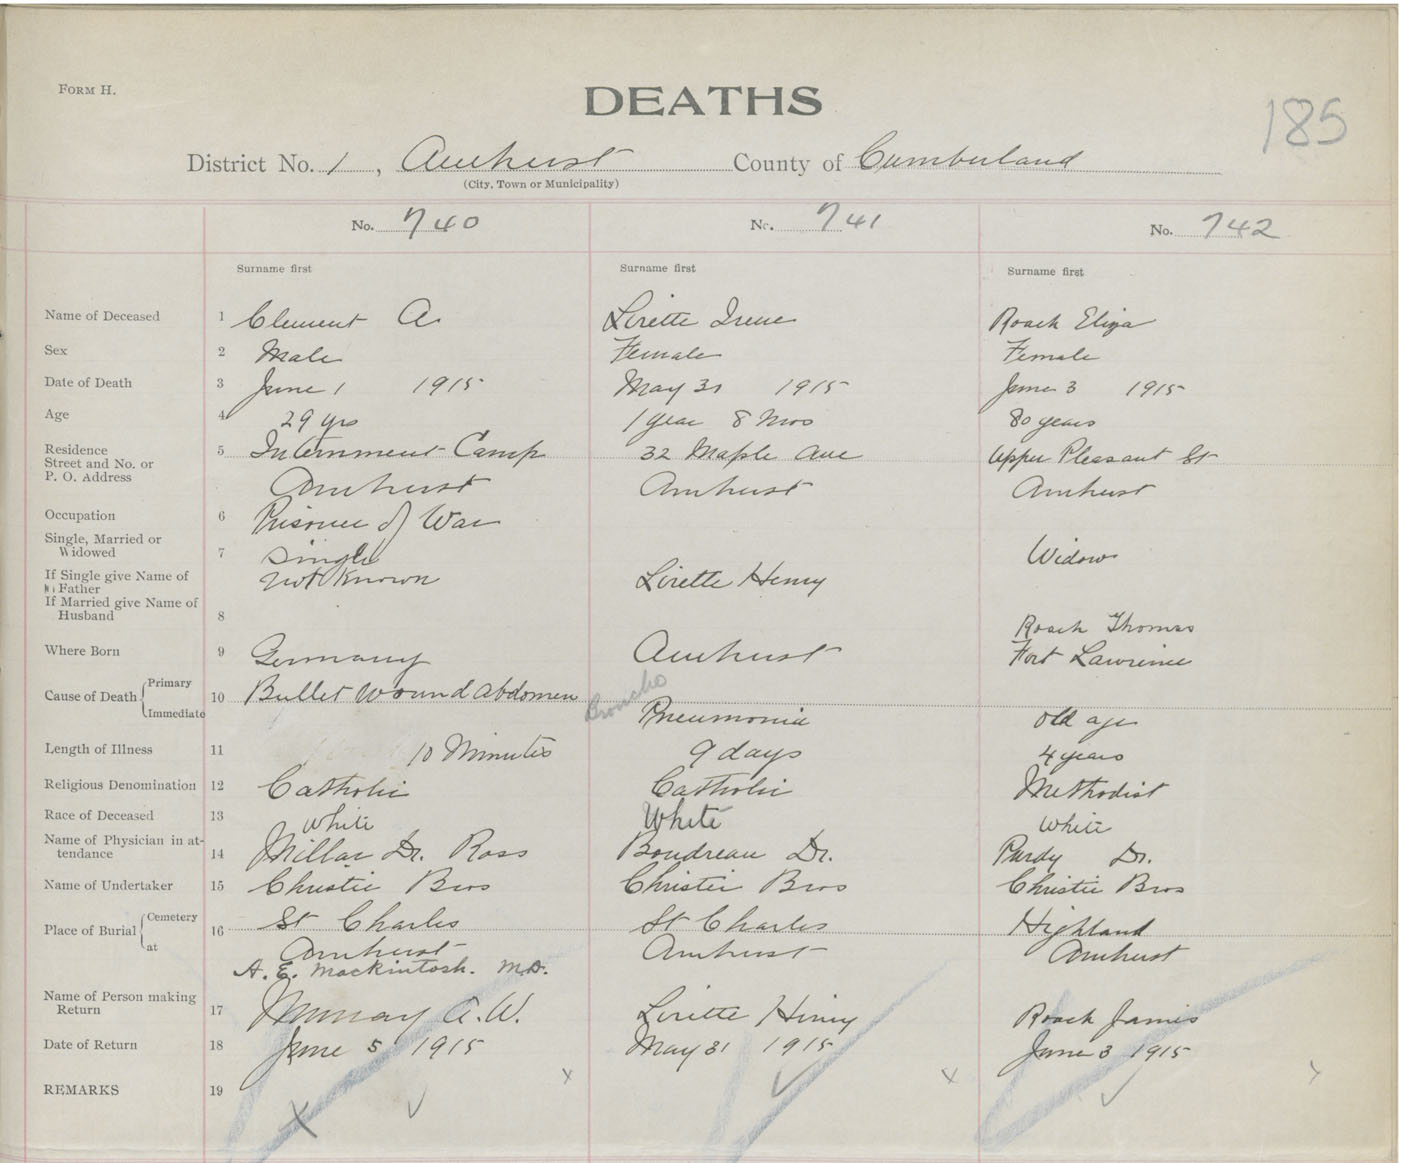 FORM H.
DEATHS
185
District No. 1, Amherst County of Cumberland
(City, Town or Municipality)
No. 740 No. 741 No. 742
Surname first Surname first Surname first
Name of Deceased 1 Clement A. Lirette Irene Roach Eliza
Sex 2 Male Female Female
Date of Death 3 June 1 1915 May 31 1915 June 3 1915
Age 4 29 yrs 1 year 8 Mos 80 years
Residence
Street and No. or 5 Internment Camp 32 Maple Ave Upper Pleasant St
P. O. Address Amherst Amherst Amherst
Occupation 6 Prisoner of War
Single, Married or
Widowed 7 Single Widow
If Single give Name of Father not known Lirette Henry
If Married give Name of
Husband 8 Roach Thomas
Where Born 9 Germany Amherst Fort Lawrence
Cause of Death Primary 10 Bullet Wound Abdomen Broncho
Immediate Pneumonia old age
Length of Illness 11 10 Minutes 9 days 4 years
Religious Denomination 12 Catholic Catholic Methodist
Race of Deceased 13 White White White
Name of Physician in at-
tendance 14 Millar Dr. Ross Boudreau Dr. Purdy Dr.
Name of Undertaker 15 Christie Bros Christie Bros Christie Bros
Place of Burial Cemetery 16 St Charles St Charles Highland
at Amherst Amherst Amherst
A. E. Mackintosh. M.D.
Name of Person making
Return 17 Murray A.W. Lirette Henry Roach James
Date of Return 18 June 5 1915 May 31 1915 June 3 1915
REMARKS 19